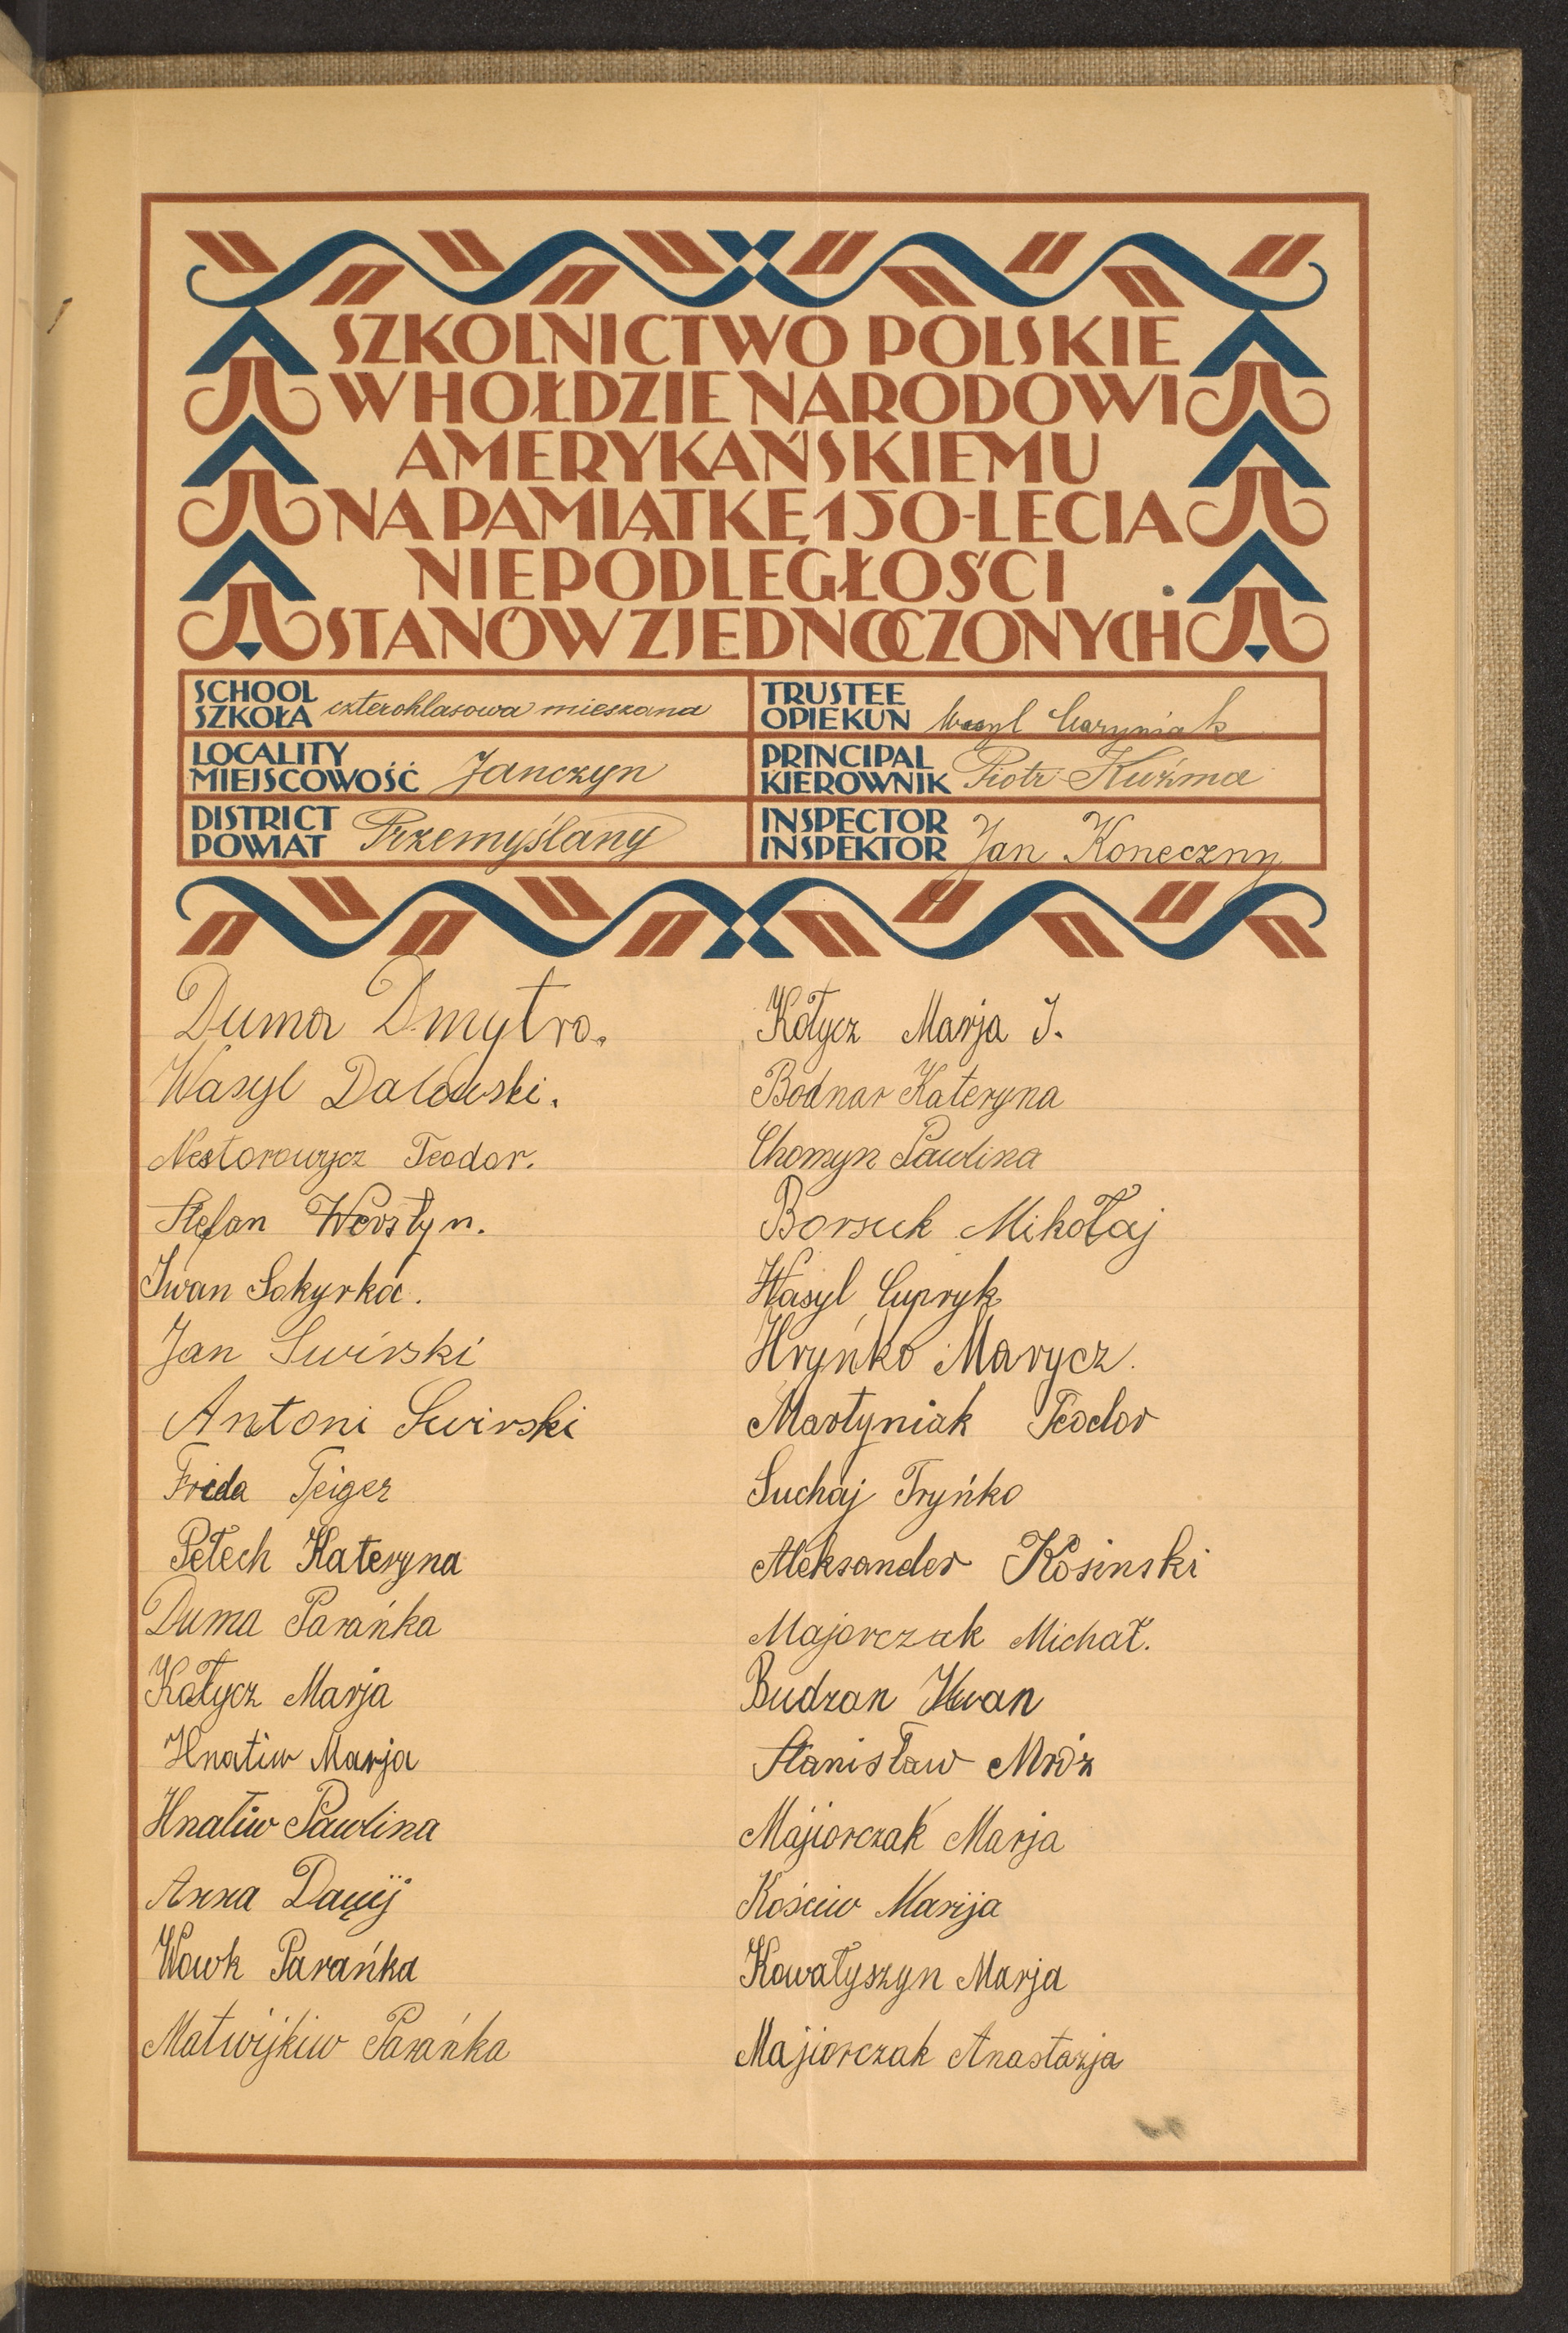 SZKOLNICTWO POLSKIE
W HOŁDZIE NARODOWI
AMERYKAŃSKIEMU
NA PAMIĄTKĘ 150-LECIA
NIEPODLEGŁOŚCI
STANÓW ZJEDNOCZONYCH
SCHOOL
SZKOŁA czteroklasowa mieszana
TRUSTEE
OPIEKUN Wasyl
LOCALITY
MIEJSCOWOŚĆ Janczyn
PRINCIPAL
KIEROWNIK Piotr Kuźma
DISTRICT
POWIAT Przemyślany
INSPECTOR
INSPEKTOR Jan Koneczny
Duma Dmytro.
Wasyl
Nestorowycz Teodor.
Stefan Worstyn.
Iwan Sokyrka.
Jan Swirski
Antoni Swirski
Frida Teiger
Pełech Kateryna
Duma Parańka
Kołycz Marja
Hnatiw Marja
Hnatiw Pawlina
Anna
Wowk Parańka
Matwijkiw Parańka
Kołycz Marja I.
Bodnar Kateryna
Chomyn Pawlina
Borsuk Mikołaj
Wasyl Cupryk
Hryńko Marycz.
Martyniak Teodor
Suchaj Tryńko
Aleksander Kosinski
Majorczak Michał.
Budzan Iwan
Stanisław Mróz
Majiorczak Marja
Kościw Marija
Kowałyszyn Marja
Majiorczak Anastazja